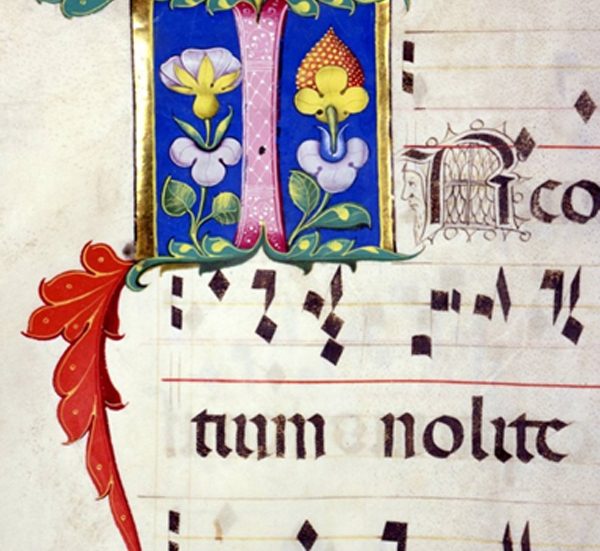 IN co
tium nolite